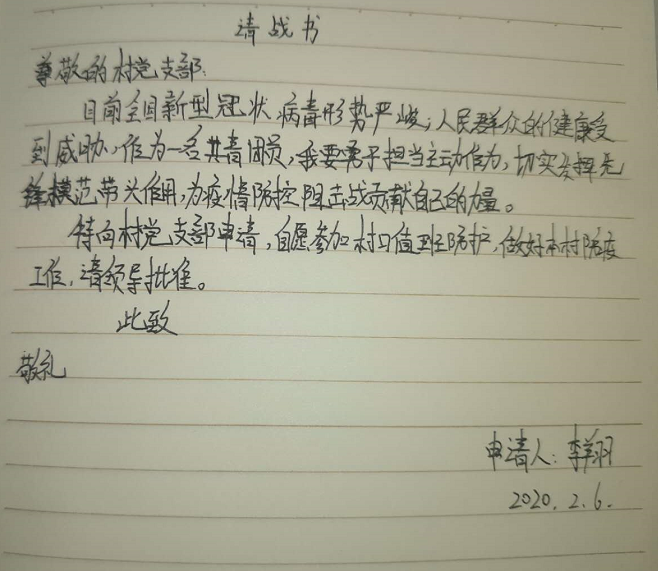 请战书
尊敬的村党支部:
目前全国新型冠状病毒形势严峻,人民群众的健康受
到威胁,作为一名共青团员,我要勇于担当主动作为,切实发挥先
锋模范带头作用,为疫情防控阻击战贡献自己的力量。
特向村党支部申请,自愿参加村口值班防护,做好本村防疫
工作,请领导批准。
此致
敬礼
申请人:李翔
2020.2.6.